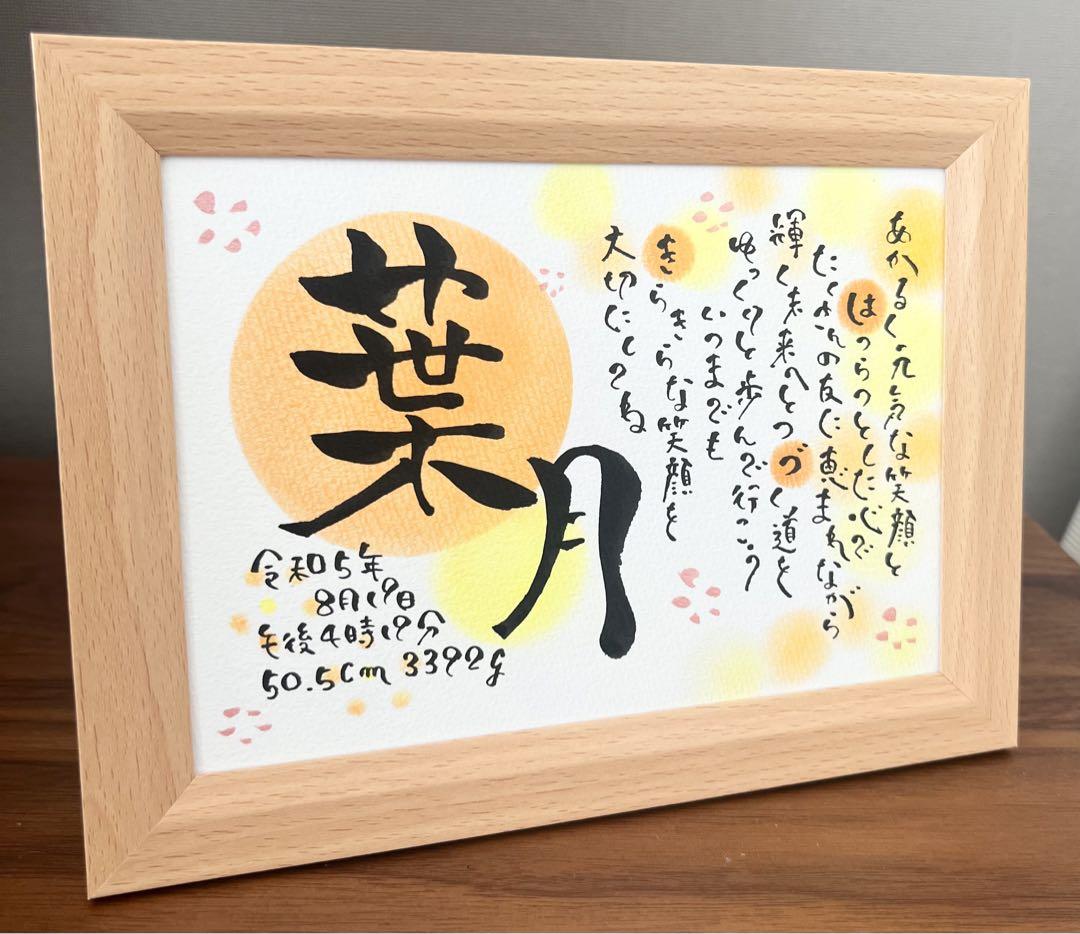 あかるく元気な笑顔と
はつらつとした心で
たくさんの友に恵まれながら
輝く未来へとつづく道を
ゆっくりと歩んで行こう
いつまでも
きらきらな笑顔を
大切にしてね
葉月
令和5年
8月19日
午後4時19分
50.5cm 3392g